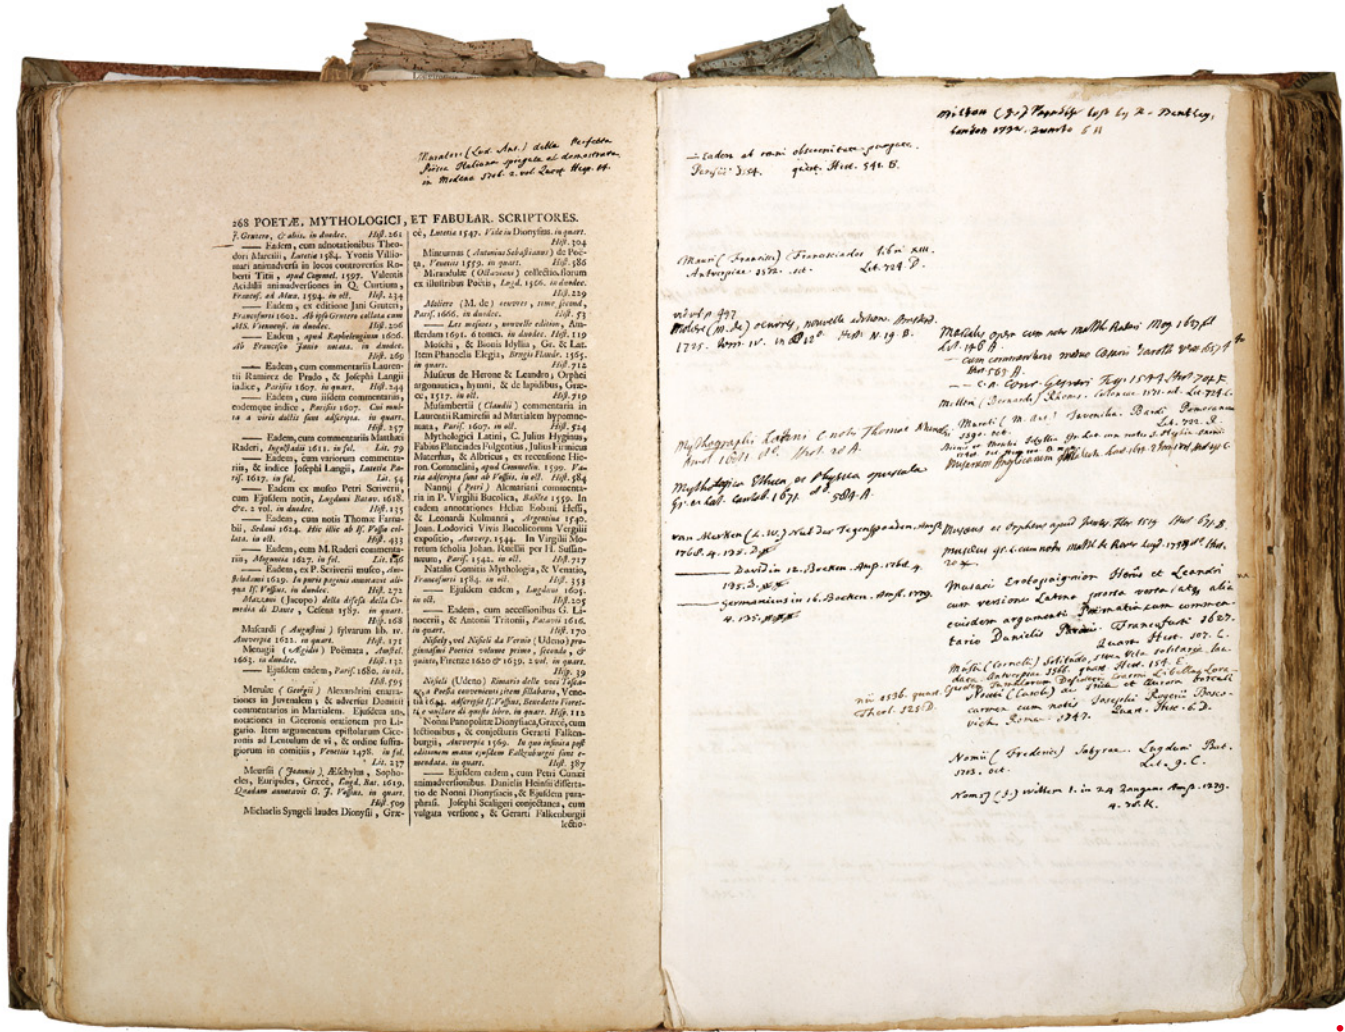 Muratori (Lud. Ant.) della Perfetta
Poesia Italiana spiegata e dimostrata
in Modena 1706. 2. vol. Quart. Hisp. 64.
268 POETÆ, MYTHOLOGICI, ET FABULAR. SCRIPTORES.
J. Grutero, & aliis. in duodec. Hist. 261
—— Eadem, cum adnotationibus Theo-
dori Marcilii, Lutetiæ 1584. Yvonis Villio-
mari animadvers. in locos controversos Ro-
berti Titii, apud Commel. 1597. Valentis
Acidalii animadversiones in Q. Curtium,
Francof. ad Mœn. 1594. in oct. Hist. 234
—— Eadem, ex editione Jani Gruteri,
Francofurti 1602. Ab ipso Grutero collata cum
MS. Viennensi. in duodec. Hist. 206
—— Eadem, apud Raphelengium 1606.
Ab Francisco Junio notata. in duodec.
Hist. 269
—— Eadem, cum commentariis Lauren-
tii Ramirez de Prado, & Josephi Langii
indice, Parisiis 1607. in quart. Hist. 244
—— Eadem, cum iisdem commentariis,
eodemque indice, Parisiis 1607. Cui mul-
ta a viris doctis sunt adscripta. in quart.
Hist. 257
—— Eadem, cum commentariis Matthæi
Raderi, Ingolstadii 1611. in fol. Lit. 79
—— Eadem, cum variorum commenta-
riis, & indice Josephi Langii, Lutetiæ Pa-
ris. 1617. in fol. Lit. 54
—— Eadem ex museo Petri Scriverii,
cum Ejusdem notis, Lugduni Batav. 1618.
&c. 2 vol. in duodec. Hist. 135
—— Eadem, cum notis Thomæ Farna-
bii, Sedani 1624. Hic illic ab Is. Vossio col-
lata. in oct. Hist. 433
—— Eadem, cum M. Raderi commenta-
riis, Moguntiæ 1627. in fol. Lit. 146
—— Eadem, ex P. Scriverii museo, Am-
stelodami 1629. In puris paginis annotavit ali-
qua Is. Vossius. in duodec. Hist. 272
Mazzoni (Jacopo) della difesa della Co-
media di Dante, Cesena 1587. in quart.
Hisp. 168
Mascardi (Augustini) sylvarum lib. IV.
Antverpiæ 1622. in quart. Hist. 171
Menagii (Ægidii) Poëmata, Amstel.
1663. in duodec. Hist. 132
—— Ejusdem eadem, Paris. 1680. in oct.
Hist. 595
Merulæ (Georgii) Alexandrini enarra-
tiones in Juvenalem; & adversus Domitii
commentarios in Martialem. Ejusdem an-
notationes in Ciceronis orationem pro Li-
gario. Item argumentum epistolarum Cice-
ronis ad Lentulum de vi, & ordine suffra-
giorum in comitiis, Venetiis 1478. in fol.
Lit. 237
Meursii (Joannis), Æschylus, Sopho-
cles, Euripides, Græcè, Lugd. Bat. 1619.
Quædam annotavit G. J. Vossius. in quart.
Hist. 509
Michaelis Syngeli laudes Dionysii, Græ-
cè, Lutetiæ 1547. Vide in Dionysius. in quart.
Hist. 304
Minturnus (Antonius Sebastianus) de Poë-
ta, Venetiis 1559. in quart. Hist. 586
Mirandulæ (Octaviani) collectio florum
ex illustribus Poëtis, Lugd. 1566. in duodec.
Hist. 229
Moliere (M. de) oeuvres, tome second,
Paris. 1666. in duodec. Hist. 53
—— Les mesmes, nouvelle edition, Am-
sterdam 1691. 6 tomes. in duodec. Hist. 119
Moschi, & Bionis Idyllia, Gr. & Lat.
Item Phanoclis Elegia, Brugis Flandr. 1565.
in quart. Hist. 712
Musæus de Herone & Leandro; Orphei
argonautica, hymni, & de lapidibus, Græ-
cè, 1517. in oct. Hist. 719
Musambertii (Claudii) commentaria in
Laurentii Ramiresii ad Martialem hypomne-
mata, Paris. 1607. in oct. Hist. 524
Mythologici Latini, C. Julius Hyginus,
Fabius Planciades Fulgentius, Julius Firmicus
Maternus, & Albricus, ex recensione Hie-
ron Commelini, apud Commelin. 1599. Va-
ria adscripta sunt ab Vossio. in oct. Hist. 584
Nannii (Petri) Alcmariani commenta-
ria in P. Virgilii Bucolica, Basileæ 1559. In
eadem annotationes Helii Eobani Hessi,
& Leonardi Kulmanni, Argentinæ 1540.
Joan. Lodovici Vivis Bucolicorum Vergilii
expositio, Antverp. 1544. In Virgilii Mo-
retum scholia Johan. Ruellii per H. Sussan-
næum, Paris. 1542. in oct. Hist. 717
Natalis Comitis Mythologia, & Venatio,
Francofurti 1584. in oct. Hist. 353
—— Ejusdem eadem, Lugduni 1605.
in oct. Hist. 205
—— Eadem, cum accessionibus G. Li-
nocerii, & Antonii Tritonii, Patavii 1616.
in quart. Hist. 170
Nisiely, vel Nisieli da Vernio (Udeno) pro-
ginnasmi Poetici volume primo, secondo, &
quinto, Firenze 1620 & 1639. 2 vol. in quart.
Hisp. 39
Nisieli (Udeno) Rimario delle voci Tosca-
ne, a Poësia convenienti; item sillabario, Vene-
tia 1644. adscripsit Is. Vossius, Benedetto Fioret-
ti è auctore di questo libro. in quart. Hisp. 112
Nonni Panopolitæ Dionysiaca, Græcè, cum
lectionibus, & conjecturis Gerarti Falken-
burgii, Antverpiæ 1569. In quo insinita post
editionem manu ejusdem Falkenburgii sunt e-
mendata. in quart. Hist. 387
—— Ejusdem eadem, cum Petri Cunæi
animadversionibus. Danielis Heinsii disserta-
tio de Nonni Dionysiacis, & Ejusdem para-
phrasi. Josephi Scaligeri conjectanea, cum
vulgata versione, & Gerarti Falkenburgii
lectio-
Milton (J.) Paradise lost by R. Bentley,
London 1732. quarto
— Eadem ab omni obscenitate purgata.
Parisiis 1554. quart. Hist. 541. B.
Mauri (Francisci) Francisciados libri XIII.
Antverpiae 1572. oct. Lit. 724. D.
vid vol. p. 497
Moliere (M. de) oeuvres, nouvelle edition. Amsterd.
1725. Tom. IV. in 12°. Hist. N. 19. B.
Mythographi Latini c. notis Thomae Munckeri
Amst. 1681. 8°. Hist. 20 A.
Mythologica Ethica et Physica opuscula
Gr. et Lat. Cantab. 1671. 8°. 584. A.
van Merken (L. W.) Nut der Tegenspoeden. Amst.
1768. 4. 135. D.
—— David in 12. Boeken. Amst. 1768. 4.
135. 3.
—— Germanicus in 16. Boeken. Amst. 1779.
4. 135.
Martialis opera cum notis Matth. Raderi Mog. 1627. fol.
Lit. 146 A.
— cum commentario
Hist. 563. A.
— C. a Conr. Gesneri Tig. 1544. Hist. 707. F.
(Bernardi) Rhoms. Coloniae. 1571. oct. Lit. 724. C.
Mureti (M. Ant.) Juvenilia. Bardi Pomeranor.
1590. oct. Lit. 722. R.
Musarum Anglicanarum
Musaeus et Orpheus apud Juntas Flor. 1519. Hist. 671. B.
Musaeus gr. L. cum notis Matth. de Rover Lugd. 1737. 8°. Hist.
20
Musaei Erotopaignion Herus et Leandri
cum versione Latina prosa versa, atq. alia
eiusdem argumenti Poëmatia cum commen-
tario Danielis Parei. Francofurti 1627.
Quart. Hist. 507. C.
Musii (Cornelii) Solitudo, sive Vita solitaria lau-
data. Antverpiae 1566. quart. Hist. 154. E.
nii 1536. quart.
Theol. 325. D.
Noceti (Caroli) de Iride et Aurora boreali
carmen cum notis Josephi Rogerii Bosco-
vich. Romae. 1747. Quart. Hist. 6. D.
Nomii (Frederici) Satyrae. Lugduni Bat.
1703. oct. Lit. 9. C.
Nomsz (J.) Willem I. in 24 Zangen Amst. 1779.
4. 36. K.